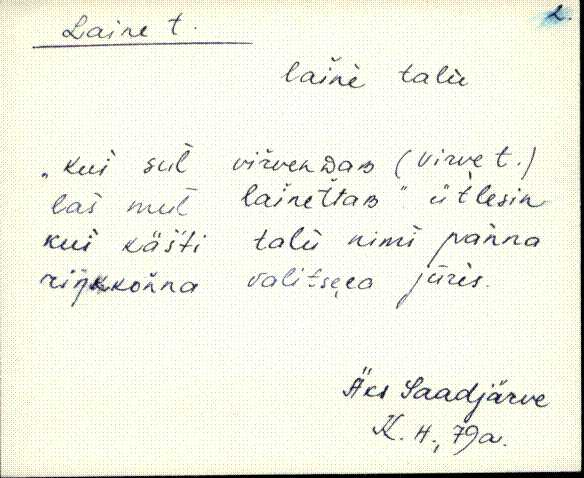 Laine t.
2.
laine talu
„kui sul virvendaʙ (virve t.)
las mul lainettaʙ" ütlesin
kui kästi talu nimi panna
valitseja jures.
Äks Saadjärve
K. H., 79a.